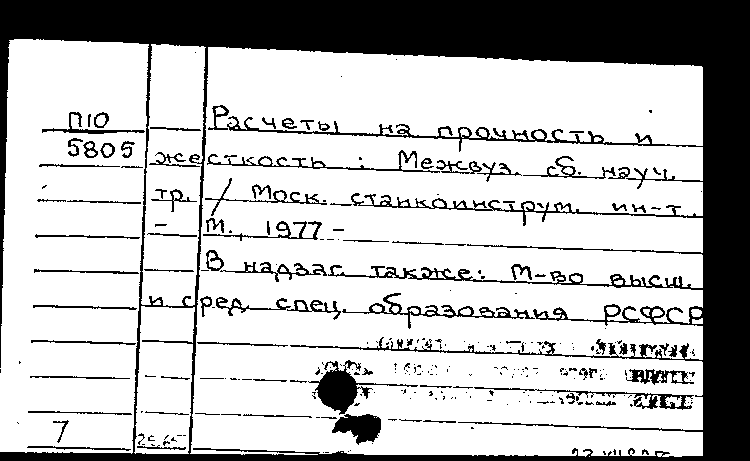 П10 Расчеты на прочность и
5805 жесткость : Межвуз. сб. науч.
тр. / Моск. станкоинструм. ин-т.
– М., 1977 –
В надзаг. также: М-во высш.
и сред. спец. образования РСФСР
7